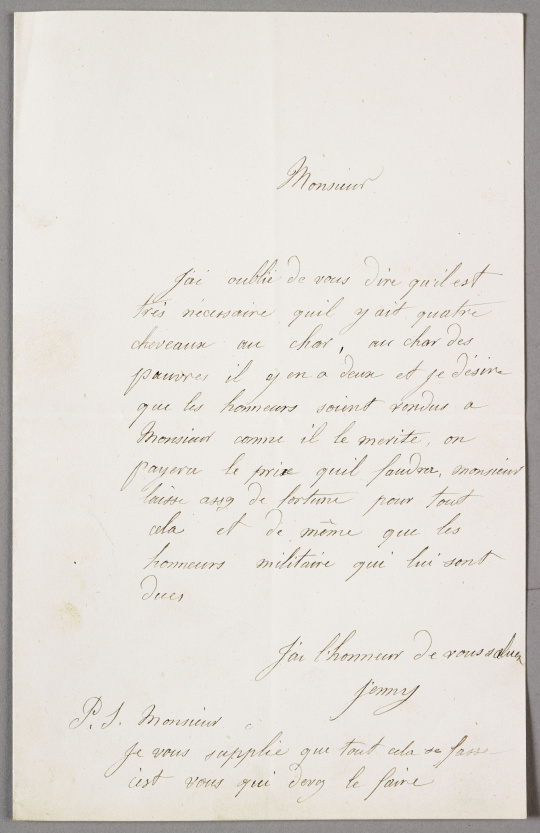 Monsieur
J'ai oublié de vous dire qu'il est
très nécessaire quil y ait quatre
chevaux au char, au char des
pauvres il y en a deux et je désire
que les honneurs soient rendus a
Monsieur comme il le merite, on
payera le prix quil faudra, monsieur
laisse assez de fortune pour tout
cela et de même que les
honneurs militaire qui lui sont
dues
J'ai l'honneur de vous saluer
Jenny
P. S. Monsieur
je vous supplie que tout cela se fasse
c'est vous qui devez le faire